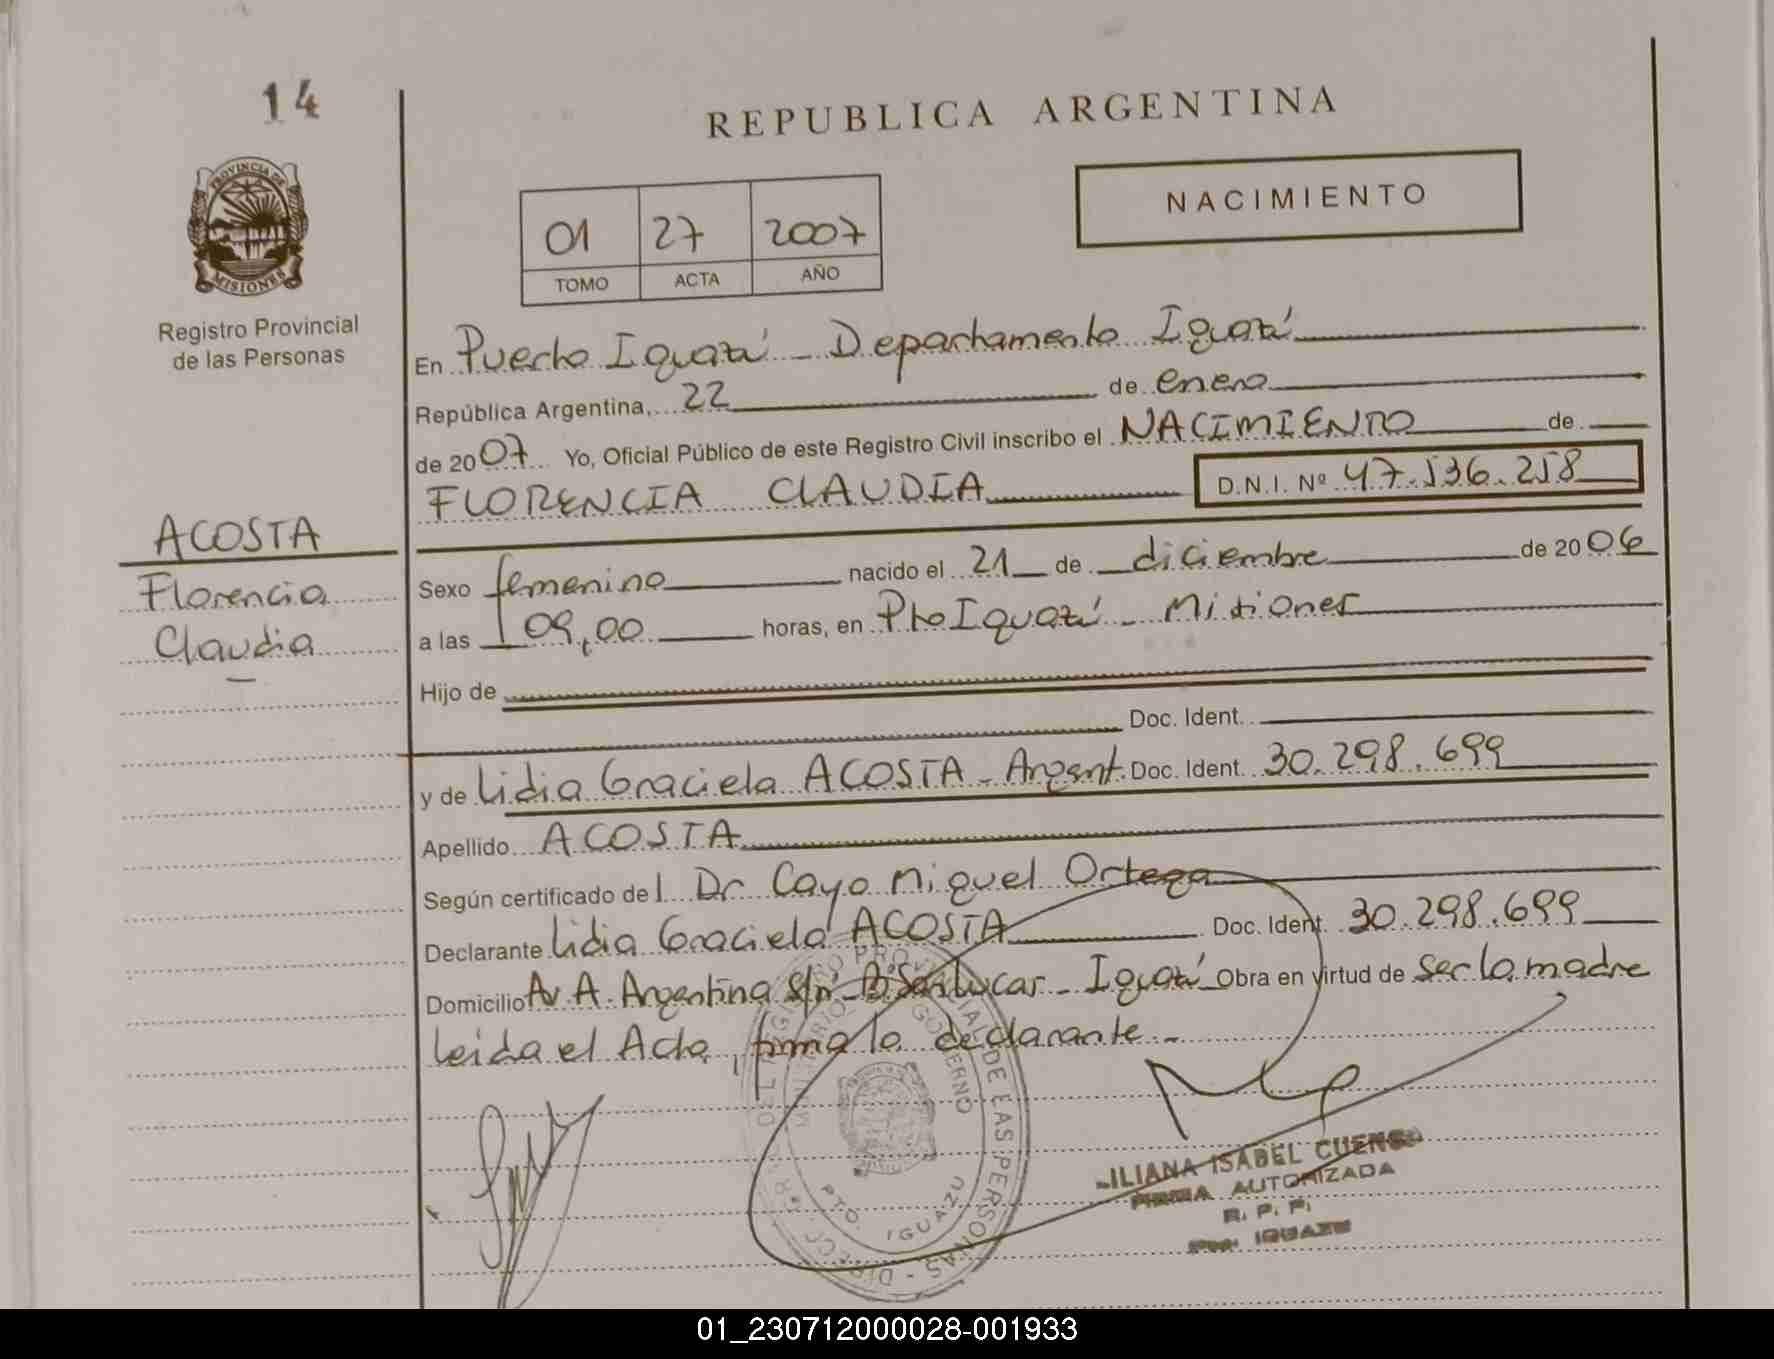 14
REPUBLICA ARGENTINA
NACIMIENTO
01 27 2007
TOMO ACTA AÑO
PROVINCIA DE
MISIONES
Registro Provincial
de las Personas
En Puerto Iguazú - Departamento Iguazú
República Argentina, 22 de enero
de 2007 Yo, Oficial Público de este Registro Civil inscribo el NACIMIENTO de
FLORENCIA CLAUDIA D.N.I. Nº 47.536.258
ACOSTA
Florencia
Claudia
Sexo femenino nacido el 21 de diciembre de 2006
a las 09,00 horas, en Pto Iguazú - Misiones
Hijo de
Doc. Ident.
y de Lidia Graciela ACOSTA - Argent. Doc. Ident. 30.298.699
Apellido ACOSTA
Según certificado del Dr. Cayo Miguel Ortega
Declarante Lidia Graciela ACOSTA Doc. Ident. 30.298.699
Domicilio Av. A. Argentina s/nº Bº Sanlucar - Iguazú Obra en virtud de ser la madre
leida el Acta, firma la declarante.-
PTO. IGUAZU
LILIANA ISABEL CUENCA
FIRMA AUTORIZADA
R. P. P.
PTO. IGUAZU
01_230712000028-001933